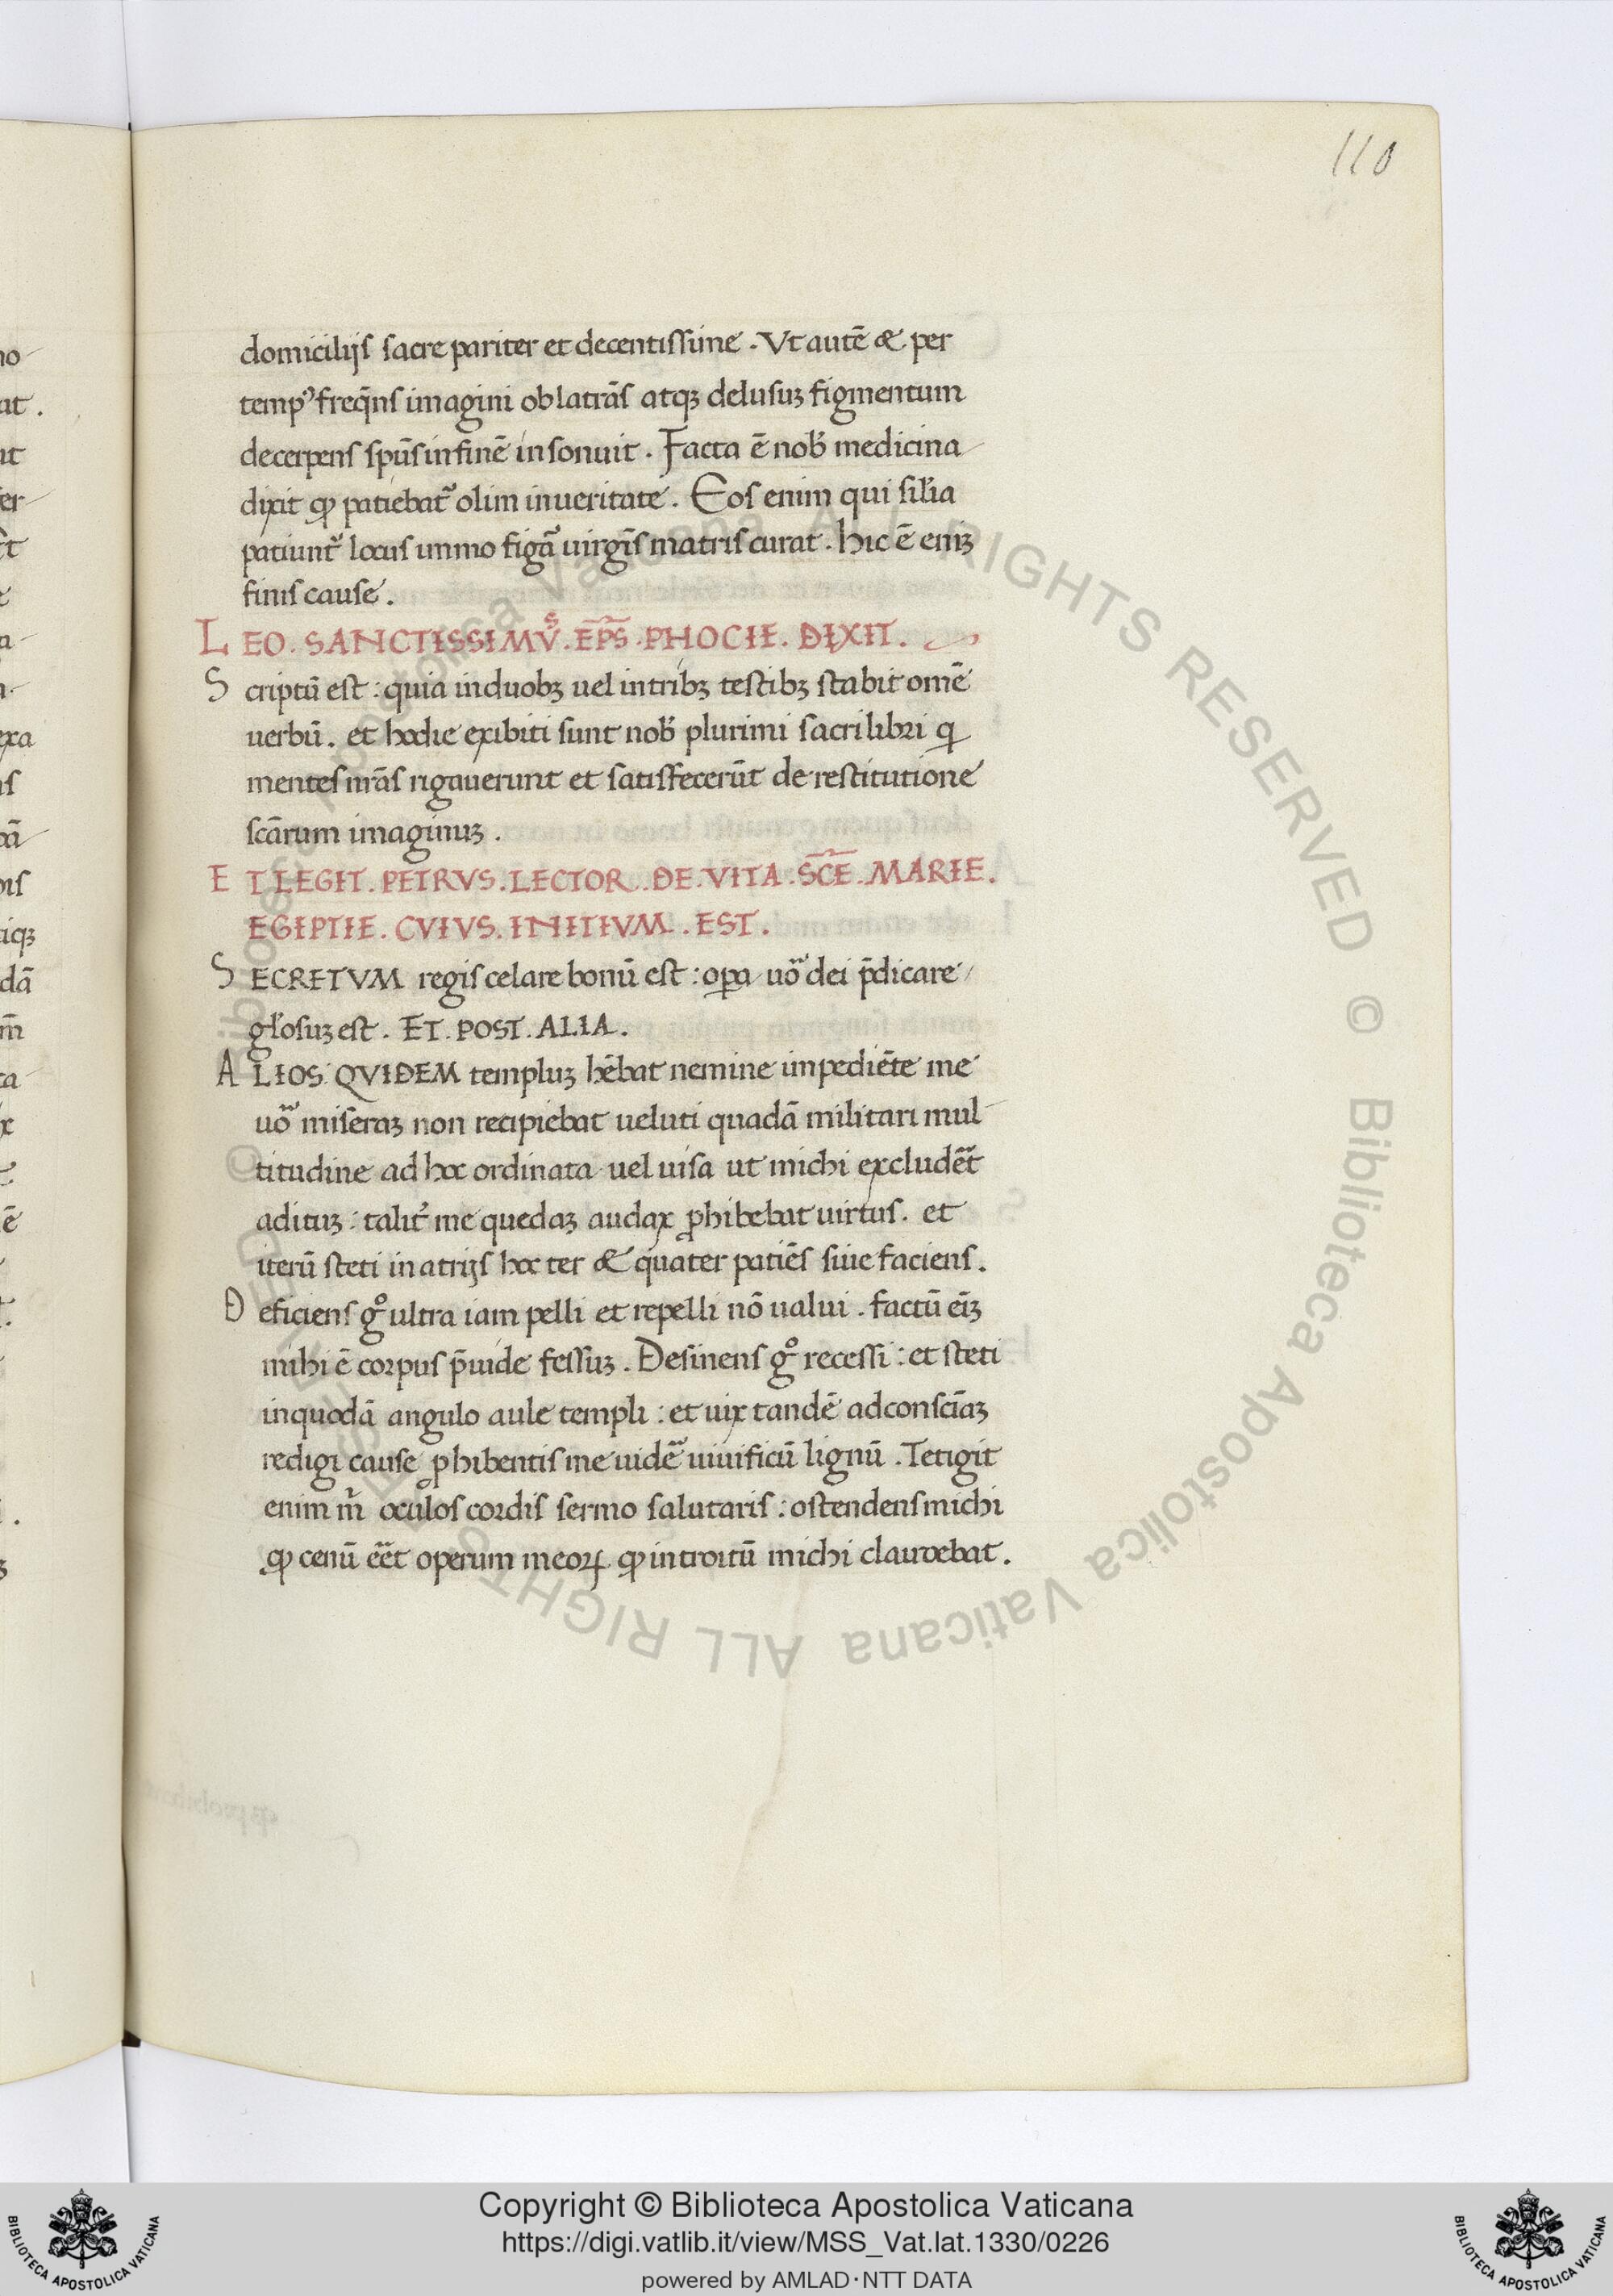 110
domicilijs sacre pariter et decentissime. Vt autē & per
temp⁹ freq̄ns imagini oblatrās atqꝫ delusuꝫ figmentum
decerpens sp̄us in finē insonuit. Facta ē nob̄ medicina
dixit qđ patiebat᷑ olim in ueritate. Eos enim qui sil̄ia
patiunt᷑ locus immo figā uirgīs matris curat. hic ē eniꝫ
finis cause.
LEO. SANCTISSIMVˢ. EP̄S. PHOCIE. DIXIT.
Scriptū est: quia in duobꝫ uel in tribꝫ testibꝫ stabit omē
uerbū. et hodie exibiti sunt nob̄ plurimi sacri libri q
mentes nrās rigauerunt et satisfecerūt de restitutione
scārum imaginuꝫ.
ET LEGIT. PETRVS. LECTOR. DE. VITA. SC̄E. MARIE.
EGIPTIE. CVIVS. INITIVM. EST.
SECRETVM regis celare bonū est: oꝑa uō dei p̄dicare
gl̄osuꝫ est. ET. POST. ALIA.
ALIOS QVIDEM templuꝫ hēbat nemine impediēte me
uō miseraꝫ non recipiebat ueluti quadā militari mul
titudine ad hoc ordinata uel uisa ut michi excludēt
adituꝫ: talit᷑ me quedaꝫ audax ꝓhibebat uirtus. et
iterū steti in atrijs hoc ter & quater patiēs siue faciens.
Deficiens gº ultra iam pelli et repelli nō ualui. factū eīꝫ
mihi ē corpus p̄uide fessuꝫ. Desinens gº recessi: et steti
in quodā angulo aule templi: et uix tandē ad consciāꝫ
redigi cause ꝓhibentis me uidē uiuificū lignū. Tetigit
enim m̄ oculos cordis sermo salutaris: ostendens michi
qđ cenū eēt operum meoꝝ qđ introitū michi claudebat.
Copyright © Biblioteca Apostolica Vaticana
https://digi.vatlib.it/view/MSS_Vat.lat.1330/0226
powered by AMLAD·NTT DATA
BIBLIOTECA APOSTOLICA VATICANA
BIBLIOTECA APOSTOLICA VATICANA
© Biblioteca Apostolica Vaticana ALL RIGHTS RESERVED © Biblioteca Apostolica Vaticana ALL RIGHTS RESERVED